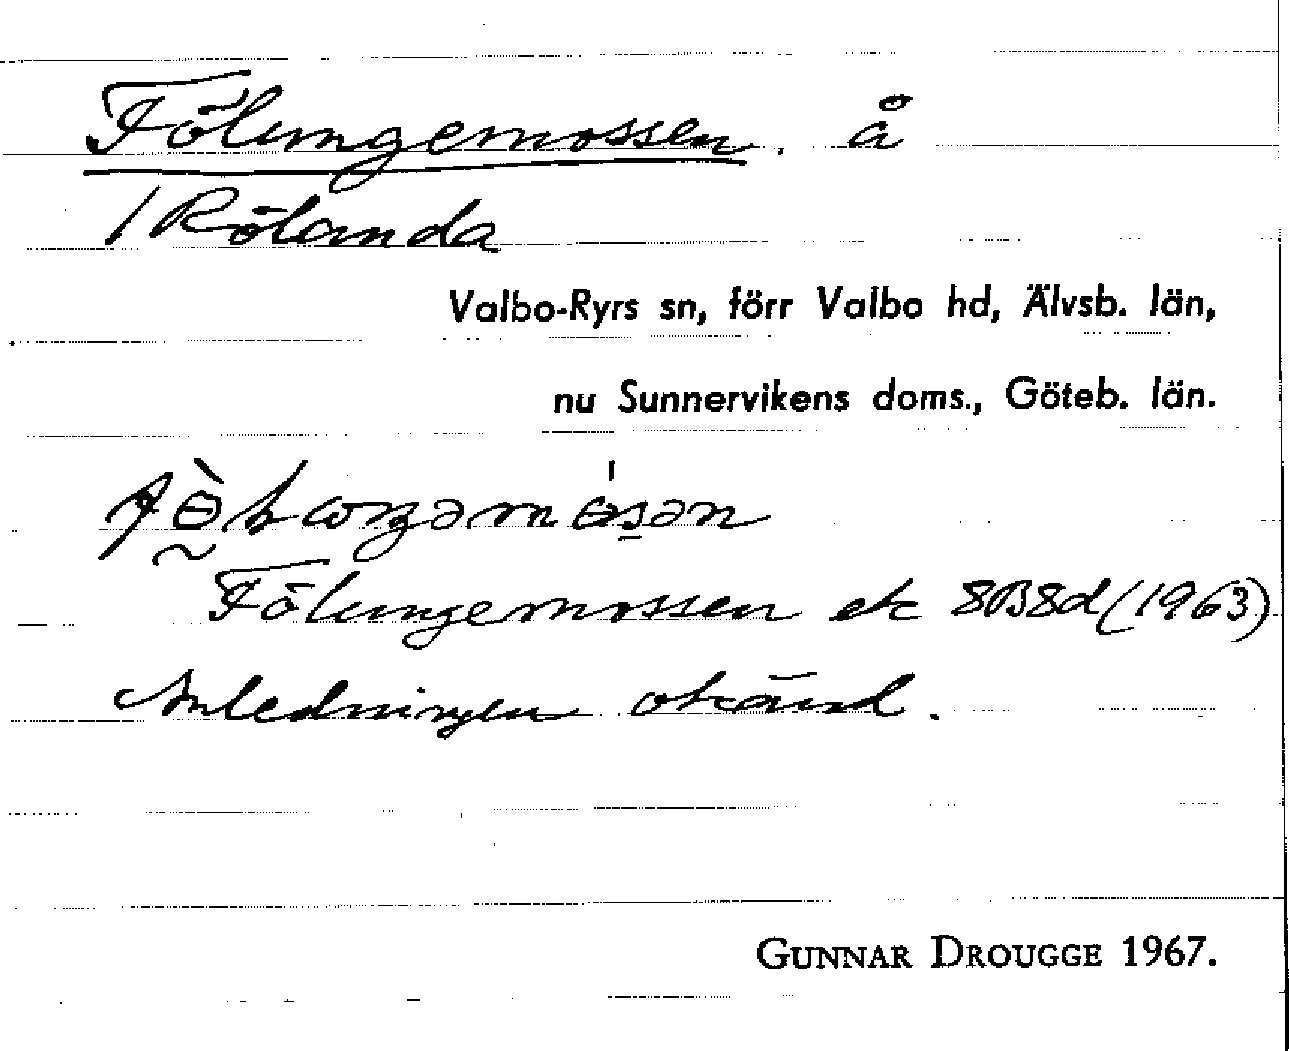 Fölungemossen. å
/ Rölanda
Valbo-Ryrs sn, förr Valbo hd, Älvsb. län,
nu Sunnervikens doms., Göteb. län.
Fölungemossen ek 8B8d (1963)
Anledningen okänd.
GUNNAR DROUGGE 1967.